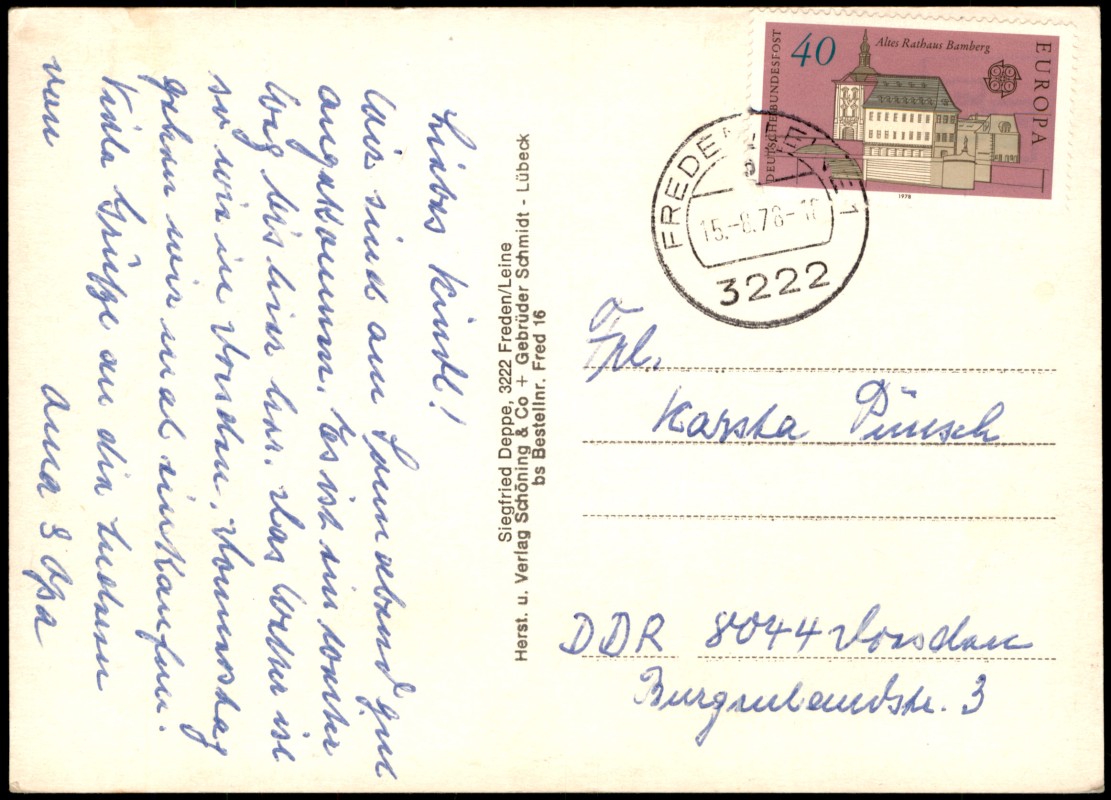 Liebes Kindl!
Wir sind am Sonnabend gut
angekommen. Es ist ein weiter
Weg bis hier her. Das Wetter ist
so wie in Dresden. Donnerstag
gehen wir mal einkaufen.
Viele Grüße an die Anderen
von Oma & Opa
Siegfried Deppe, 3222 Freden/Leine
Herst. u. Verlag Schöning & Co + Gebrüder Schmidt - Lübeck
bs Bestellnr. Fred 16
DEUTSCHE BUNDESPOST
40
Altes Rathaus Bamberg
EUROPA
1978
FREDEN
1
15.-8.78-18
3222
Frl.
Karsta Pünsch
DDR 8044 Dresden
Burgenlandstr. 3